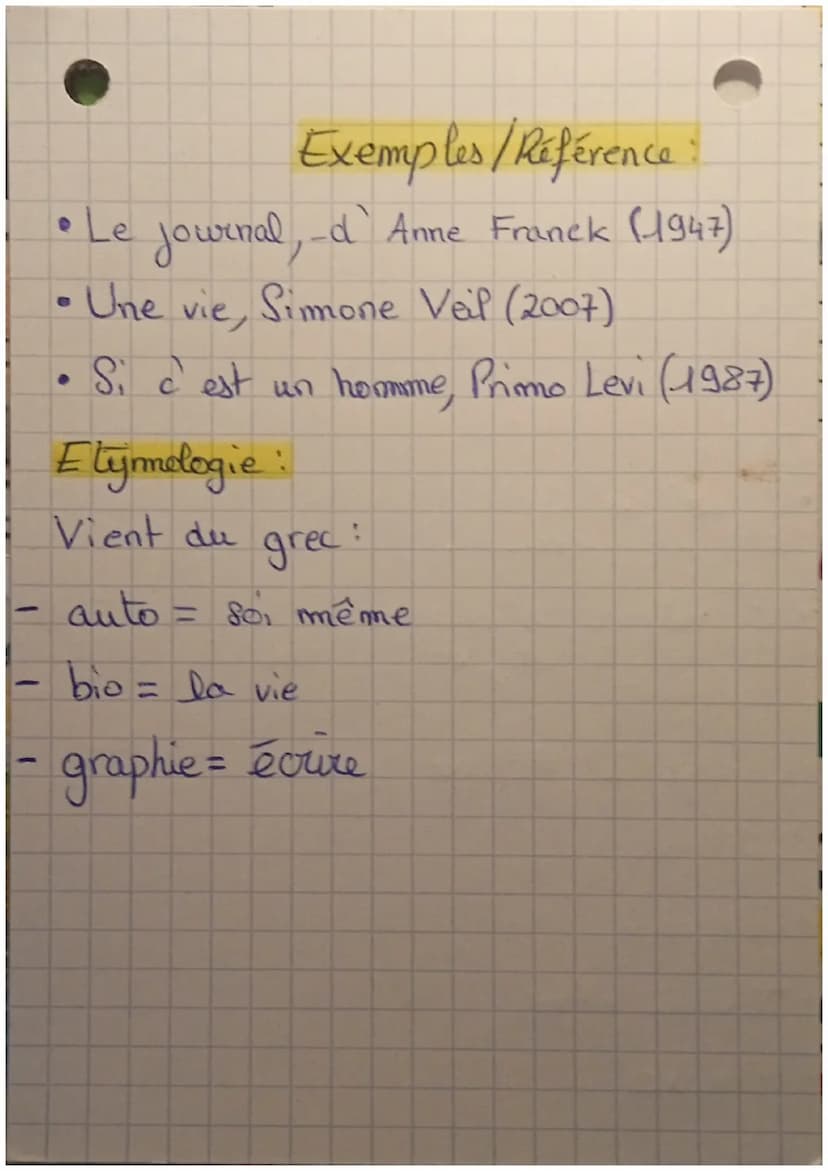 Exemples/Référence :
• Le journal, d' Anne Franck (1947)
• Une vie, Simone Veil (2007)
• Si c'est un homme, Primo Levi (1987)
Etymologie :
Vient du grec :
- auto = soi même
- bio = la vie
- graphie = écrire